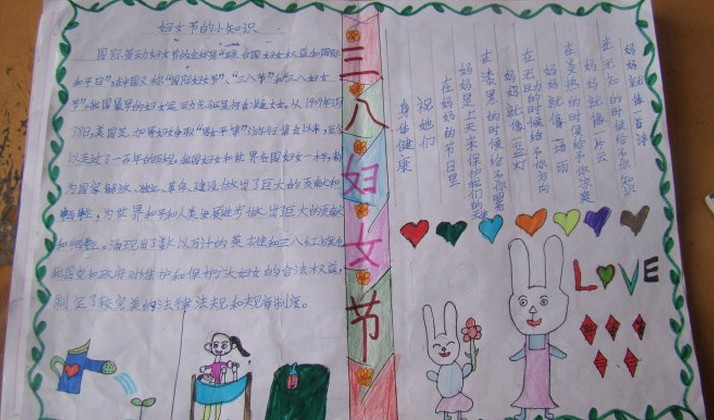 妇女节的小知识
国际劳动妇女节的全称是"联合国妇女权益和国际
和平日"在中国又称"国际妇女节"、"三八节"和三八妇女
节"。我国最早的妇女运动先驱是何香凝女士。从1909年3月
8日,美国芝加哥妇女争取"男女平等"游行集会以来,至今
以走过了一百年的历程,我国妇女和世界各国妇女一样,
为国家解放、独立、革命、建设做出了巨大的贡献和
牺牲,为世界和平和人类发展进步做出了巨大的贡献
和牺牲。涌现出了数以万计的英
我国党和政府对维护和保护广大妇女的合法权益,
制定了较完美的法律法规和规章制度。
三八妇女节
妈妈就像首诗
在无知的时候给予你知识
妈妈就像一片云
在炎热的时候给予你凉爽
妈妈就像一场雨
在无助的时候给予你方向
妈妈就像一盏灯
在漆黑的时候给予你照明
妈妈是上天来保护我们的天使
在妈妈的节日里
祝她们
身体健康
LOVE